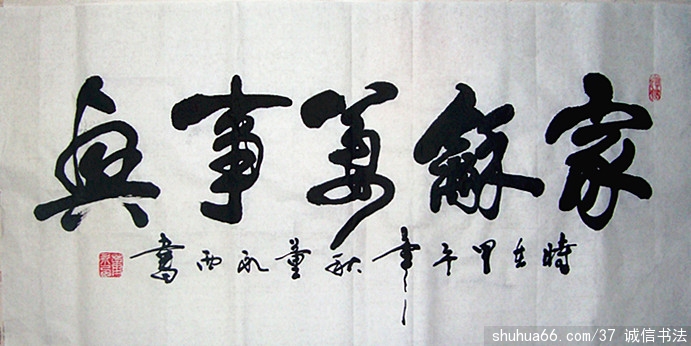 家龢萬事興
時在甲午年秋董永西書
shuhua66.com/37 诚信书法